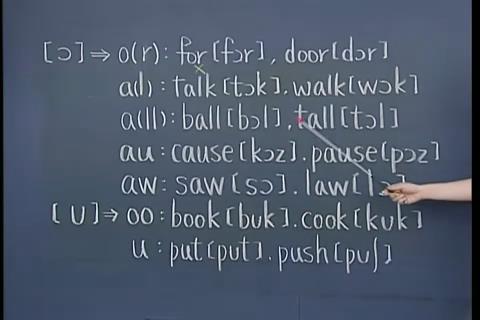 [ɔ] ⇒ o(r): for[fɔr], door[dɔr]
a(l): talk[tɔk]. walk[wɔk]
a(ll): ball[bɔl], tall[tɔl]
au: cause[kɔz]. pause[pɔz]
aw: saw[sɔ]. law[lɔ]
[ʊ]⇒ oo: book[bʊk]. cook[kʊk]
u: put[pʊt]. push[pʊʃ]